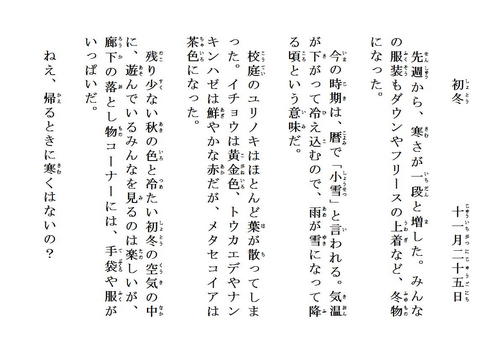 初冬　　十一月二十五日
先週から、寒さが一段と増した。みんな
の服装もダウンやフリースの上着など、冬物
になった。
今の時期は、暦で「小雪」と言われる。気温
が下がって冷え込むので、雨が雪になって降
る頃という意味だ。
校庭のユリノキはほとんど葉が散ってしま
った。イチョウは黄金色、トウカエデやナン
キンハゼは鮮やかな赤だが、メタセコイアは
茶色になった。
残り少ない秋の色と冷たい初冬の空気の中
に、遊んでいるみんなを見るのは楽しいが、
廊下の落とし物コーナーには、手袋や服が
いっぱいだ。
ねえ、帰るときに寒くはないの？